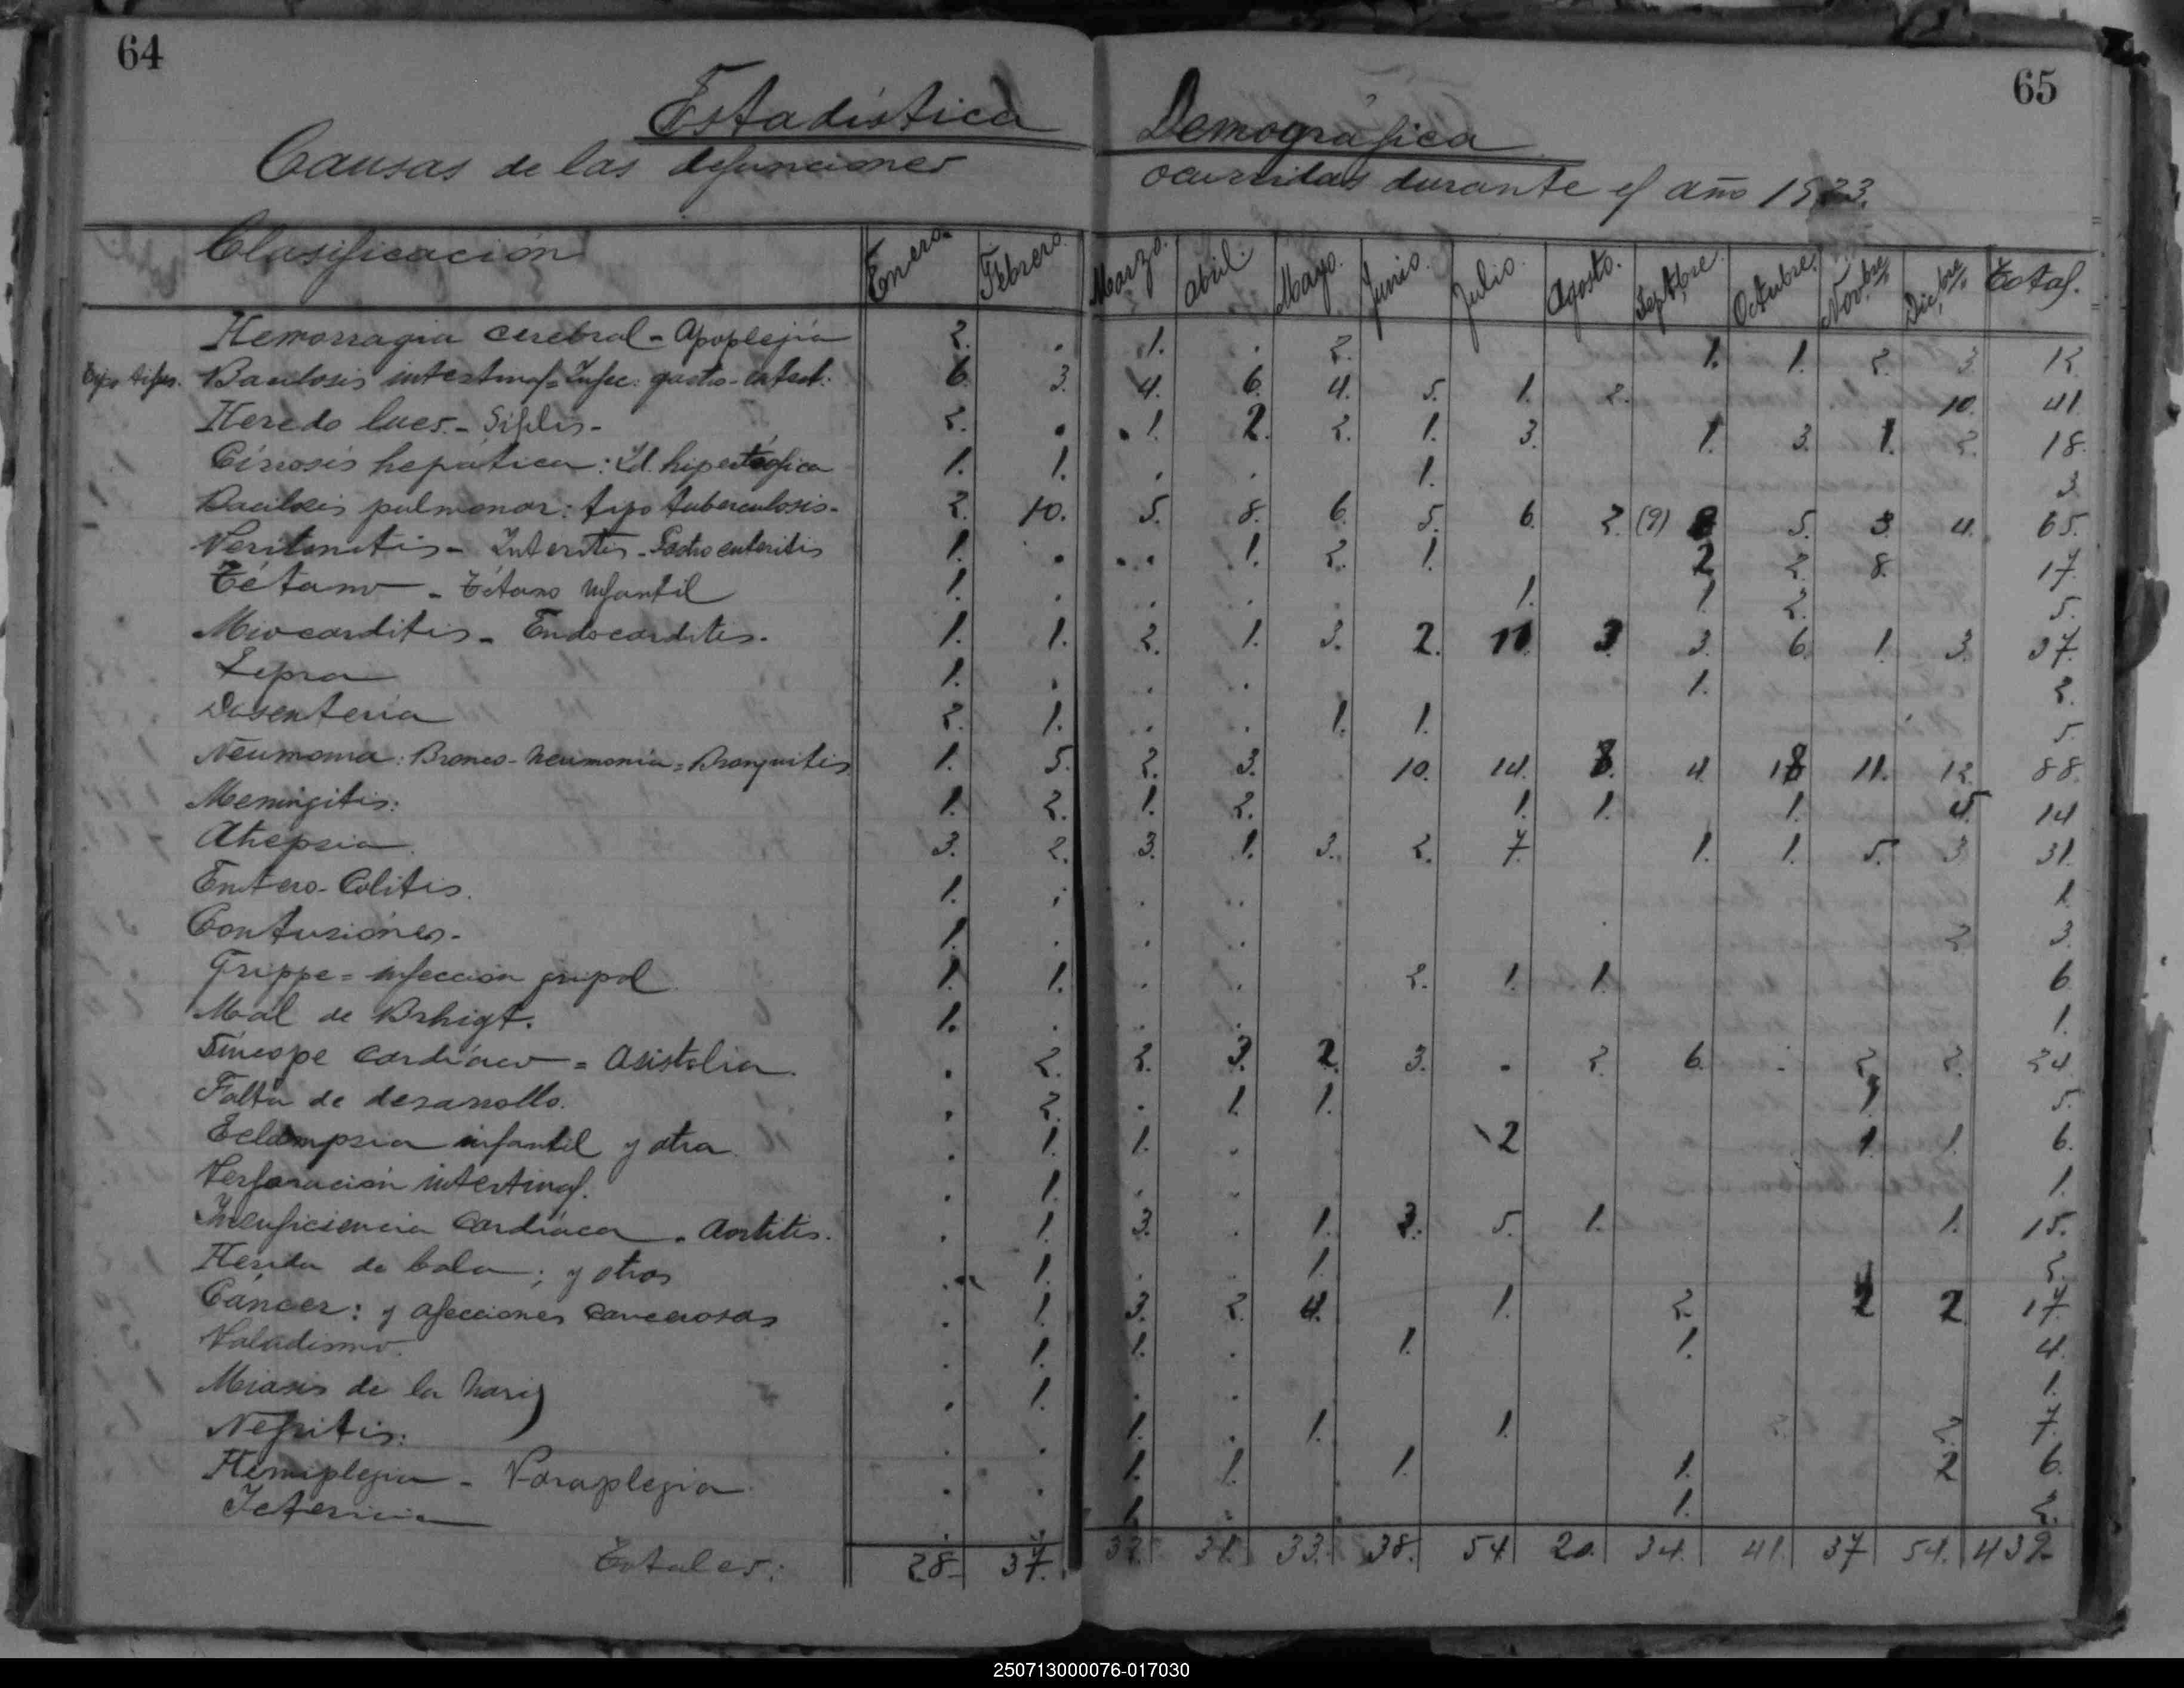 64
65
Estadística Demográfica
Causas de las defunciones ocurridas durante el año 1923.
Clasificación Enero. Febrero. Marzo. abril. Mayo. Junio. Julio. Agosto. Septbre. Octubre. Novbre Dicbre Total.
Hemorragia cerebral - Apoplejía 2. . 1. . 2. 1. 1. 2. 3 12
Tipo tifus. Bacilosis intestinal = Infec: gastro-intest: 6. 3. 4. 6. 4. 5. 1. 2. 10. 41
Heredo lues. - Sífilis - 2. . 1. 2. 2. 1. 3. 1. 3. 1. 2. 18.
Cirrosis hepática: Id. hipertrófica 1. 1. . . 1. 3
Bacilosis pulmonar: tipo tuberculosis - 2. 10. 5. 8. 6. 5. 6. 2. (9) 5. 3. 4. 65.
Peritonitis - Enteritis - Gastro enteritis 1. . . . 1. 2. 1. 2 2. 8. 17.
Tétano - Tétano infantil 1. . . . . 1. 1. 2. 5.
Miocarditis - Endocarditis. 1. 1. 2. 1. 3. 2. 11. 3 3. 6. 1. 3. 37.
Lepra 1. . . . 1. 2.
Disentería 2. 1. . . 1. 1. 5.
Neumonia: Bronco-neumonia = Bronquitis 1. 5. 2. 3. 10. 14. 8. 4. 18 11. 12. 88.
Meningitis: 1. 2. 1. 2. 1. 1. 1. 5. 14
Atrepsia. 3. 2. 3. 1. 3. 2. 7. 1. 1. 5. 3 31.
Entero-Colitis. 1. . . . . 1.
Contusiónes. - 1. . . . . 2 3.
Grippe = infección gripal. 1. 1. . . . 2. 1. 1. 6
Mal de Brhigt. 1. . . . 1.
Síncope Cardíaco = Asistolia. . 2. 2. 3. 2. 3. . 2. 6. . 2. 2. 24
Falta de desarrollo. . 2. . 1. 1. 1. 5.
Eclampsia infantil y otra. . 1. 1. . 2 1. 1. 6.
Perforación intestinal. . 1. . . 1.
Insuficiencia Cardíaca - Aortitis. . 1. 3. . 1. 3. 5. 1. 1. 15.
Herida de bala; y otras . 1. . . 1. 2.
Cáncer: y afecciones Cancerosas . 1. 3. 2. 4. 1. 2. 2 2 17.
Paludismo. . 1. 1. . 1. 1. 4.
Miasis de la nariz . 1. . . 1.
Nefritis: . . 1. . 1. 1. 2. 7.
Hemiplegia - Paraplegia . . 1. 1. 1. 1. 2 6.
Ictericia . . 1. 1. 2.
Totales: 28. 37. 32. 31. 33. 38. 54 20. 34. 41. 37 54. 439.
250713000076-017030